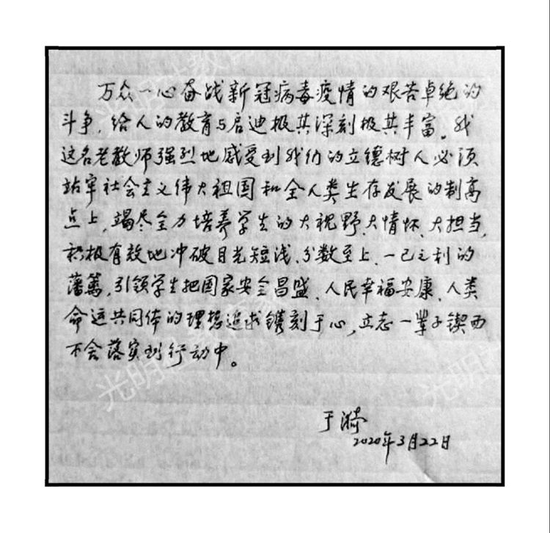 万众一心奋战新冠病毒疫情的艰苦卓绝的
斗争，给人的教育与启迪极其深刻极其丰富。我
这名老教师强烈地感受到我们的立德树人必须
站牢社会主义伟大祖国和全人类生存发展的制高
点上，竭尽全力培养学生的大视野、大情怀、大担当，
积极有效地冲破目光短浅、分数至上、一己之利的
藩篱，引领学生把国家安全昌盛、人民幸福安康、人类
命运共同体的理想追求镌刻于心，立志一辈子锲而
不舍落实到行动中。
于漪
2020年3月22日
光明
光明